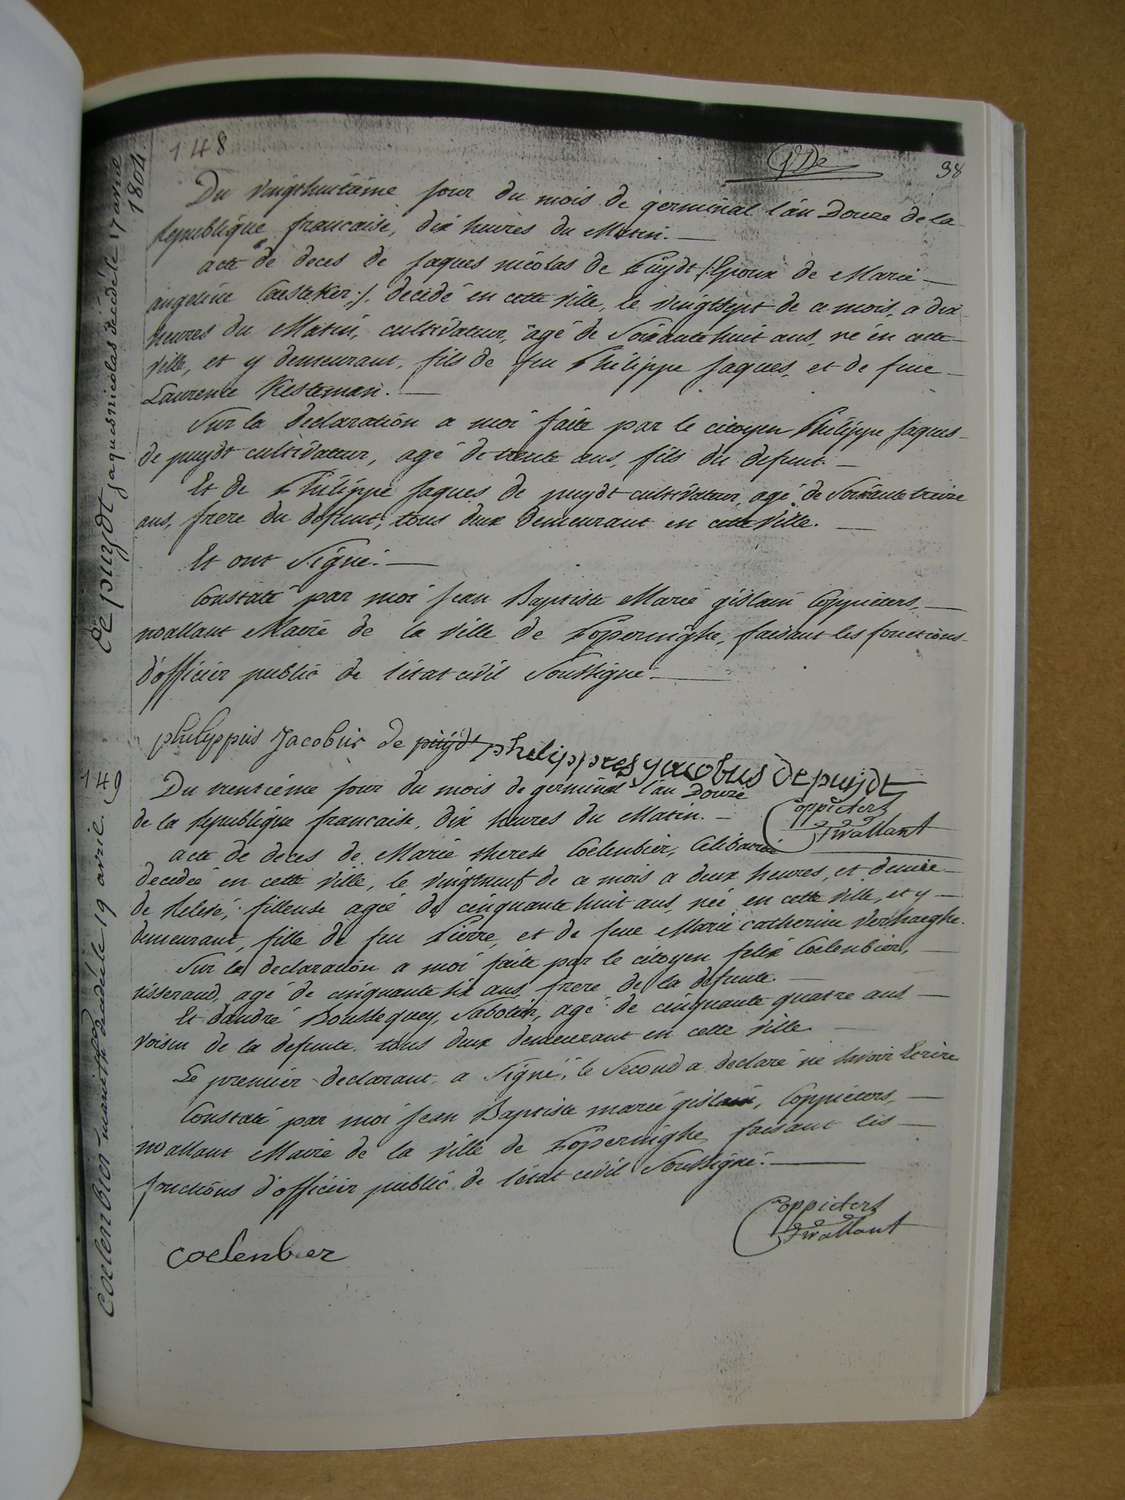 148
38
De puydt jaques nicolas décédé le 17 avril
1804
Du vingthuitiême jour du mois de germinal l'an Douze de la
Republique francaise, dix heures du Matin. —
acte de deces de Jaques nicolas de Puÿdt /: Epoux de Marie —
angeline Caesteker :/ décédé en cette ville, le vingtsept de ce mois, a dix
heures du Matin, cultivateur, âgé de Soixante huit ans, né en cette
ville, et y demeurant, fils de feu Philippe Jaques, et de feue —
Laurence Kesteman. —
Sur la declaration a moi faite par le citoyen Philippe Jaques
de puydt cultivateur, agé de trente ans, fils du defunt. —
Et de Philippe Jaques de puydt cultivateur, agé de Soixante treize
ans, frere du defunt, tous deux demeurant en cette ville. —
Et ont Signé. —
Constaté par moi Jean Baptiste Marie gislain Coppieters, —
wallant Maire de la ville de Poperinghe, faisant les fonctions
d'officier public de l'etat civil Soussigné. —
philyppus Jacobus de puÿdt philippres yacobus depuydt
Coppieters
Twallant
149
Coelenbier marie th décédé le 19 avril.
Du trentième jour du mois de germinal l'an Douze
de la Republique francaise, dix heures du Matin. —
acte de deces de Marie therese Coelenbier, Celibataire
decedée en cette ville, le vingtneuf de ce mois a deux heures, et demie
de relevé, fileuse agée de cinquante huit ans, née en cette ville, et y —
demeurant, fille de feu Pierre, et de feue Marie catherine Vermaeghe.
Sur la declaration a moi faite par le citoyen felix Coelenbier, —
tisserand, agé de cinquante six ans, frere de la defunte —
Et dandré Bousteguey, Sabotier, agé de cinquante quatre ans —
voisin de la defunte, tous deux demeurant en cette ville. —
Le premier declarant, a Signé, le Second a declaré ne Savoir Ecrire
Constaté par moi Jean Baptiste marie gislain, Coppieters, —
wallant Maire de la ville de Poperinghe faisant les —
fonctions d'officier public de l'etat civil Soussigné. —
Coppieters
Twallant
coelenbier